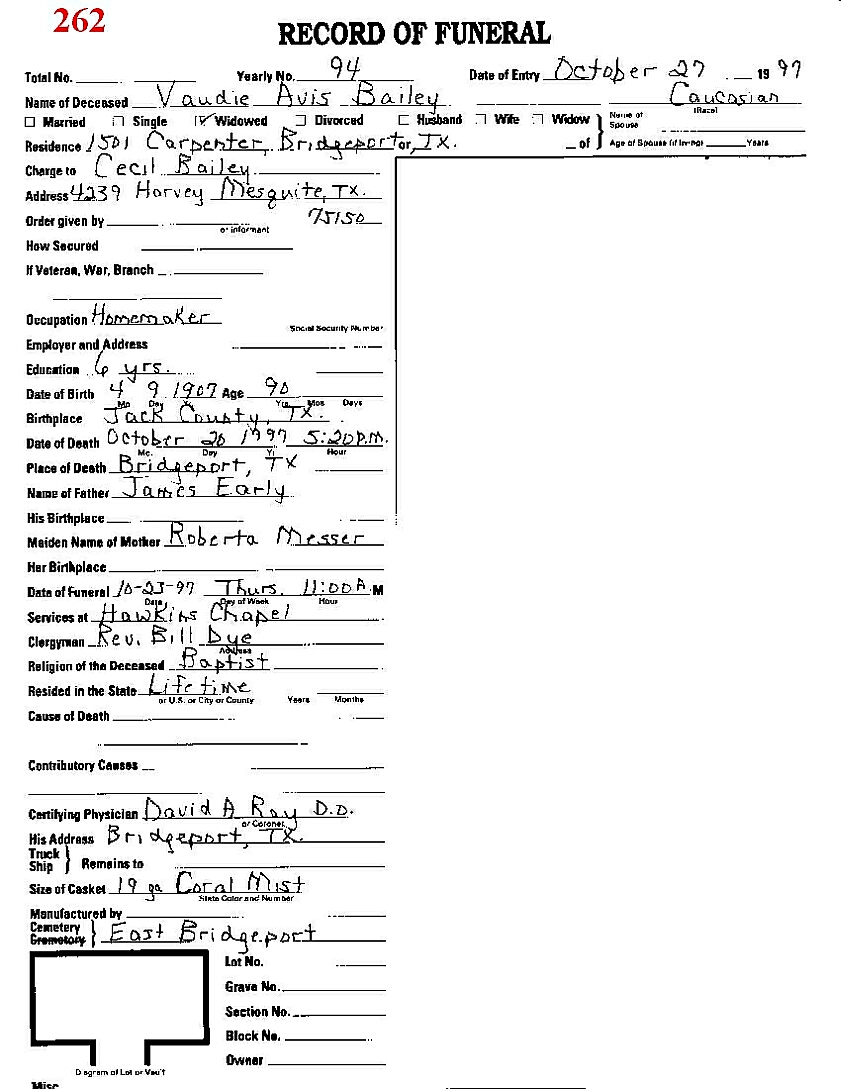 262
RECORD OF FUNERAL
Total No. Yearly No. 94 Date of Entry October 27 1997
Name of Deceased Vaudie Avis Bailey Caucasian
(Race)
☐ Married ☐ Single ☑ Widowed ☐ Divorced ☐ Husband ☐ Wife ☐ Widow } Name of Spouse
Residence 1501 Carpenter, Bridgeport, TX. or of } Age of Spouse (if living) Years
Charge to Cecil Bailey
Address 4239 Harvey Mesquite, TX.
Order given by 75150
or informant
How Secured
If Veteran, War, Branch
Occupation Homemaker
Social Security Number
Employer and Address
Education 6 yrs.
Date of Birth 4 9 1907 Age 90
Mo Day Yr. Yrs. Mos Days
Birthplace Jack County, TX.
Date of Death October 20 1997 5:20 P.M.
Mo. Day Yr Hour
Place of Death Bridgeport, TX
Name of Father James Early
His Birthplace
Maiden Name of Mother Roberta Messer
Her Birthplace
Date of Funeral 10-23-97 Thurs. 11:00 A M
Date Day of Week Hour
Services at Hawkins Chapel
Clergyman Rev. Bill Dye
Address
Religion of the Deceased Baptist
Resided in the State Lifetime
or U.S. or City or County Years Months
Cause of Death
Contributory Causes
Certifying Physician David A Ray D.O.
or Coroner
His Address Bridgeport, TX.
Truck
Ship } Remains to
Size of Casket 19 ga Coral Mist
State Color and Number
Manufactured by
Cemetery
Crematory } East Bridgeport
Lot No.
Grave No.
Section No.
Block No.
Owner
Diagram of Lot or Vault
Misc